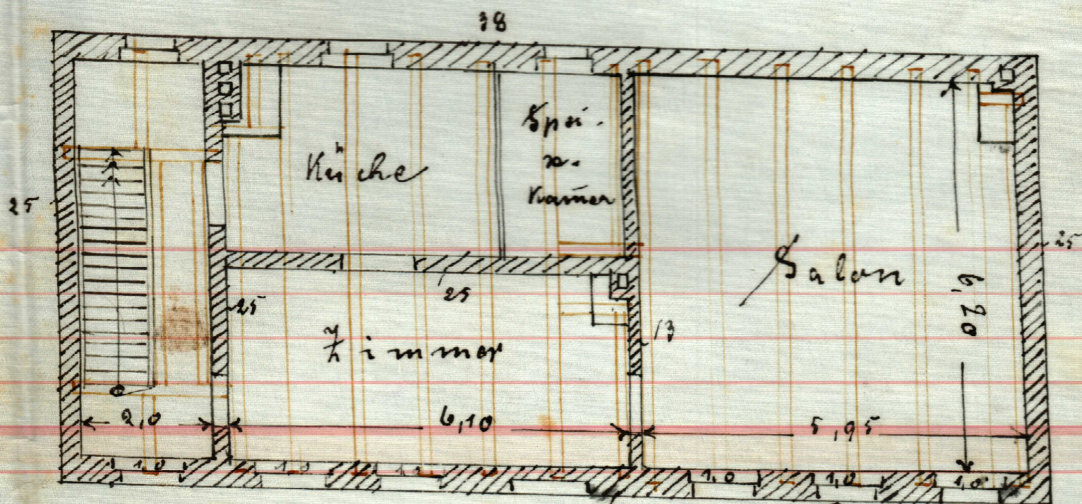 38
Küche
Spei-
se-
Kamer
25
Salon
25
6,20
25
25
Zimmer
13
2,0
6,10
5,95
1,0
1,0
1,0
1,0
1,0
1,0